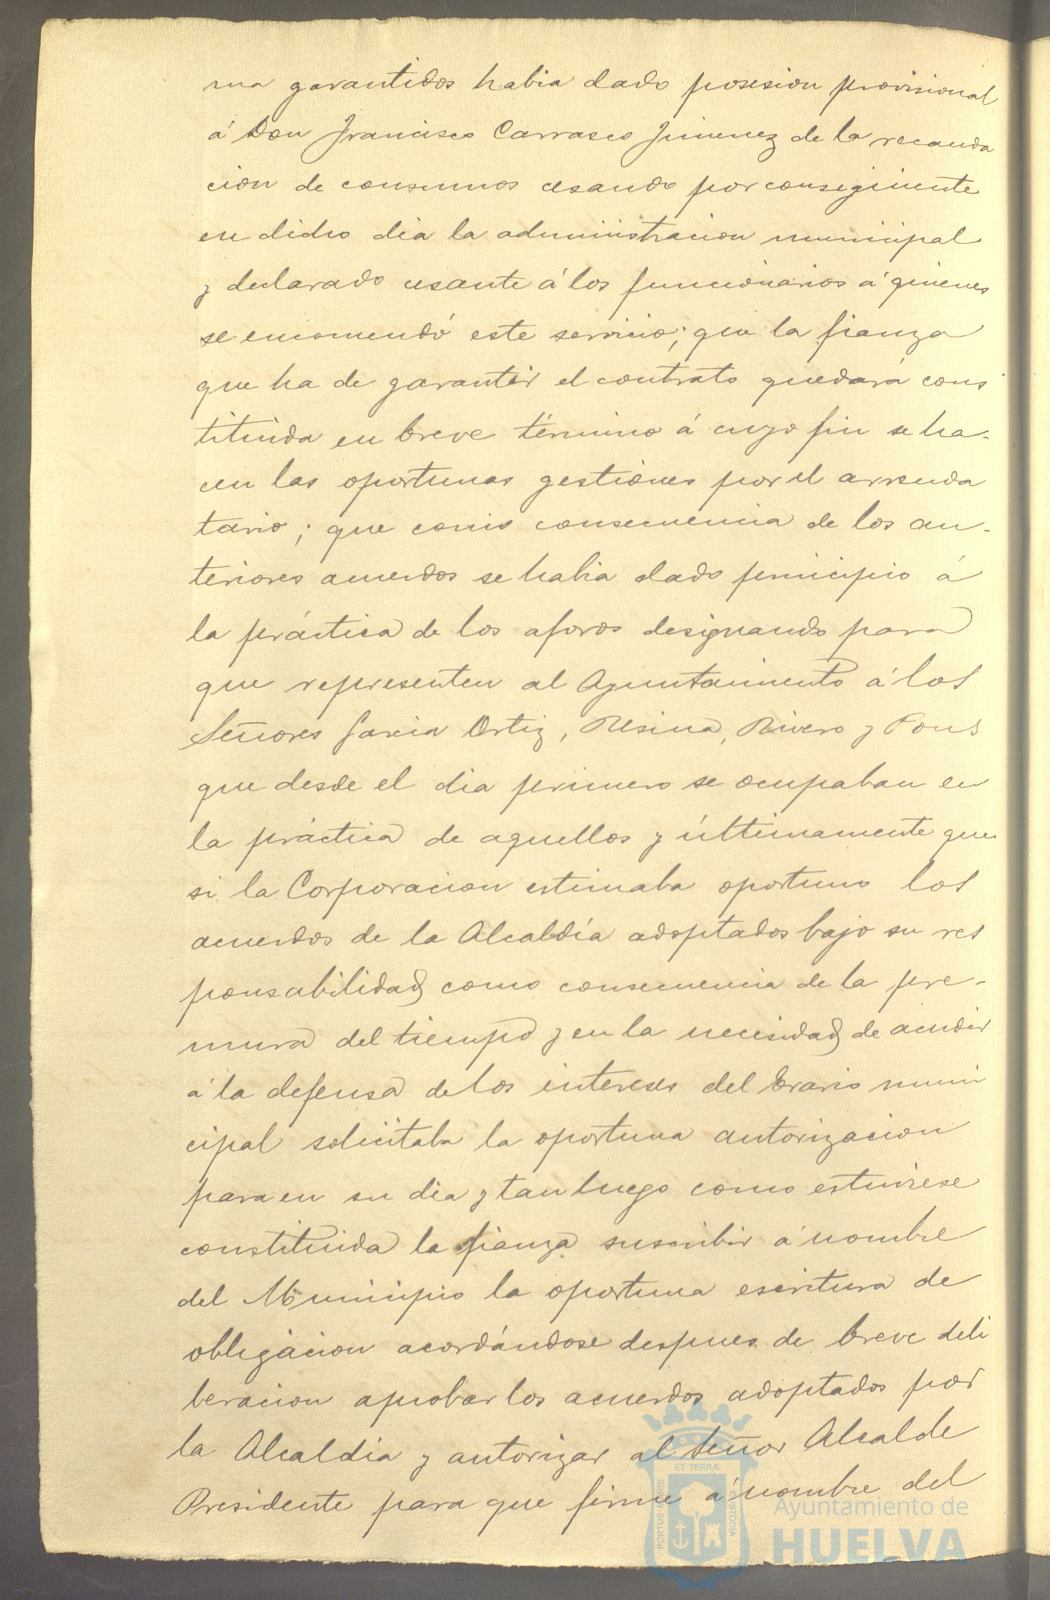 ma garantidos habia dado posesion provisional
á Don Francisco Carrasco Jimenez de la recauda
cion de consumos cesando por consiguiente
en dicho dia la administracion municipal
y declarado cesante á los funcionarios á quienes
se encomendó este servicio; que la fianza
que ha de garantir el contrato quedará cons
tituida en breve término á cuyo fin se ha-
cen las oportunas gestiones por el arrenda
tario; que como consecuencia de los an-
teriores acuerdos se habia dado principio á
la práctica de los aforos designando para
que representen al Ayuntamiento á los
Señores Garcia Ortiz, Resina, Rivero y Pons
que desde el dia primero se ocupaban en
la práctica de aquellos y últimamente que
si la Corporacion estimaba oportuno los
acuerdos de la Alcaldía adoptados bajo su res
ponsabilidad como consecuencia de la pre-
mura del tiempo y en la necesidad de acudir
á la defensa de los intereses del Erario muni
cipal solicitaba la oportuna autorizacion
para en su dia y tan luego como estuviese
constituida la fianza suscribir á nombre
del Municipio la oportuna escritura de
obligacion acordándose despues de breve deli
beracion aprobar los acuerdos adoptados por
la Alcaldia y autorizar al Señor Alcalde
Presidente para que firme á nombre del
ET TERRA
PORTUS MARIS
CUSTODIA
Ayuntamiento de
HUELVA